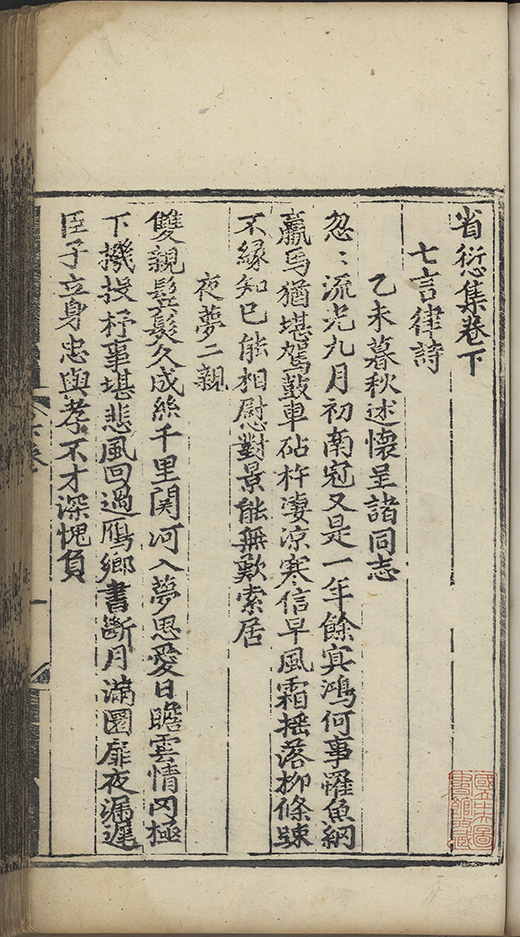 省愆集卷下
七言律詩
乙未暮秋述懷呈諸同志
忽〻流光九月初南冠又是一年餘㝠鴻何事羅魚網
羸馬猶堪駕鼓車砧杵凄凉寒信早風霜揺落柳條踈
不緣知已能相慰對景能無歎索居
夜夢二親
雙親髩髮久成絲千里関河入夢思愛日瞻雲情罔極
下機投杼事堪悲風囬過鴈鄉書斷月滿圜扉夜漏遲
臣子立身忠與孝不才深愧負
國立中央圖
書館收藏